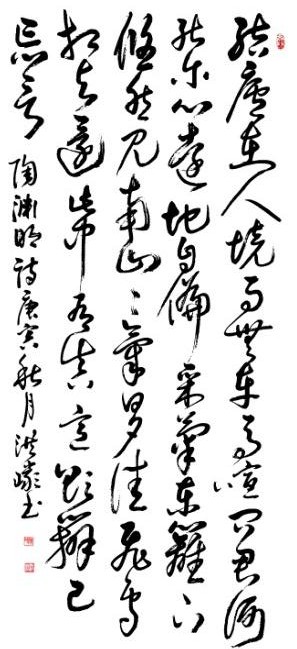 結廬在人境而無車馬喧問君何
能尔心遠地自偏采菊東籬下
悠然見南山〻氣日夕佳飛鳥
相與還此中有真意欲辨已
忘言 陶淵明詩庚寅秋月洪書